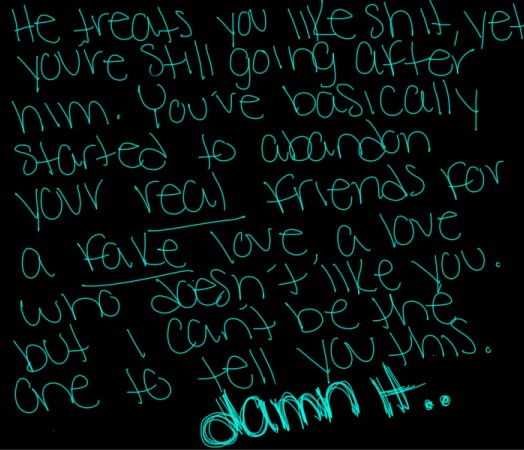 He treats you like shit, yet
you're still going after
him. You've basically
started to abandon
your real friends for
a fake love, a love
who doesn't like you.
but i can't be the
one to tell you this.
damn it..